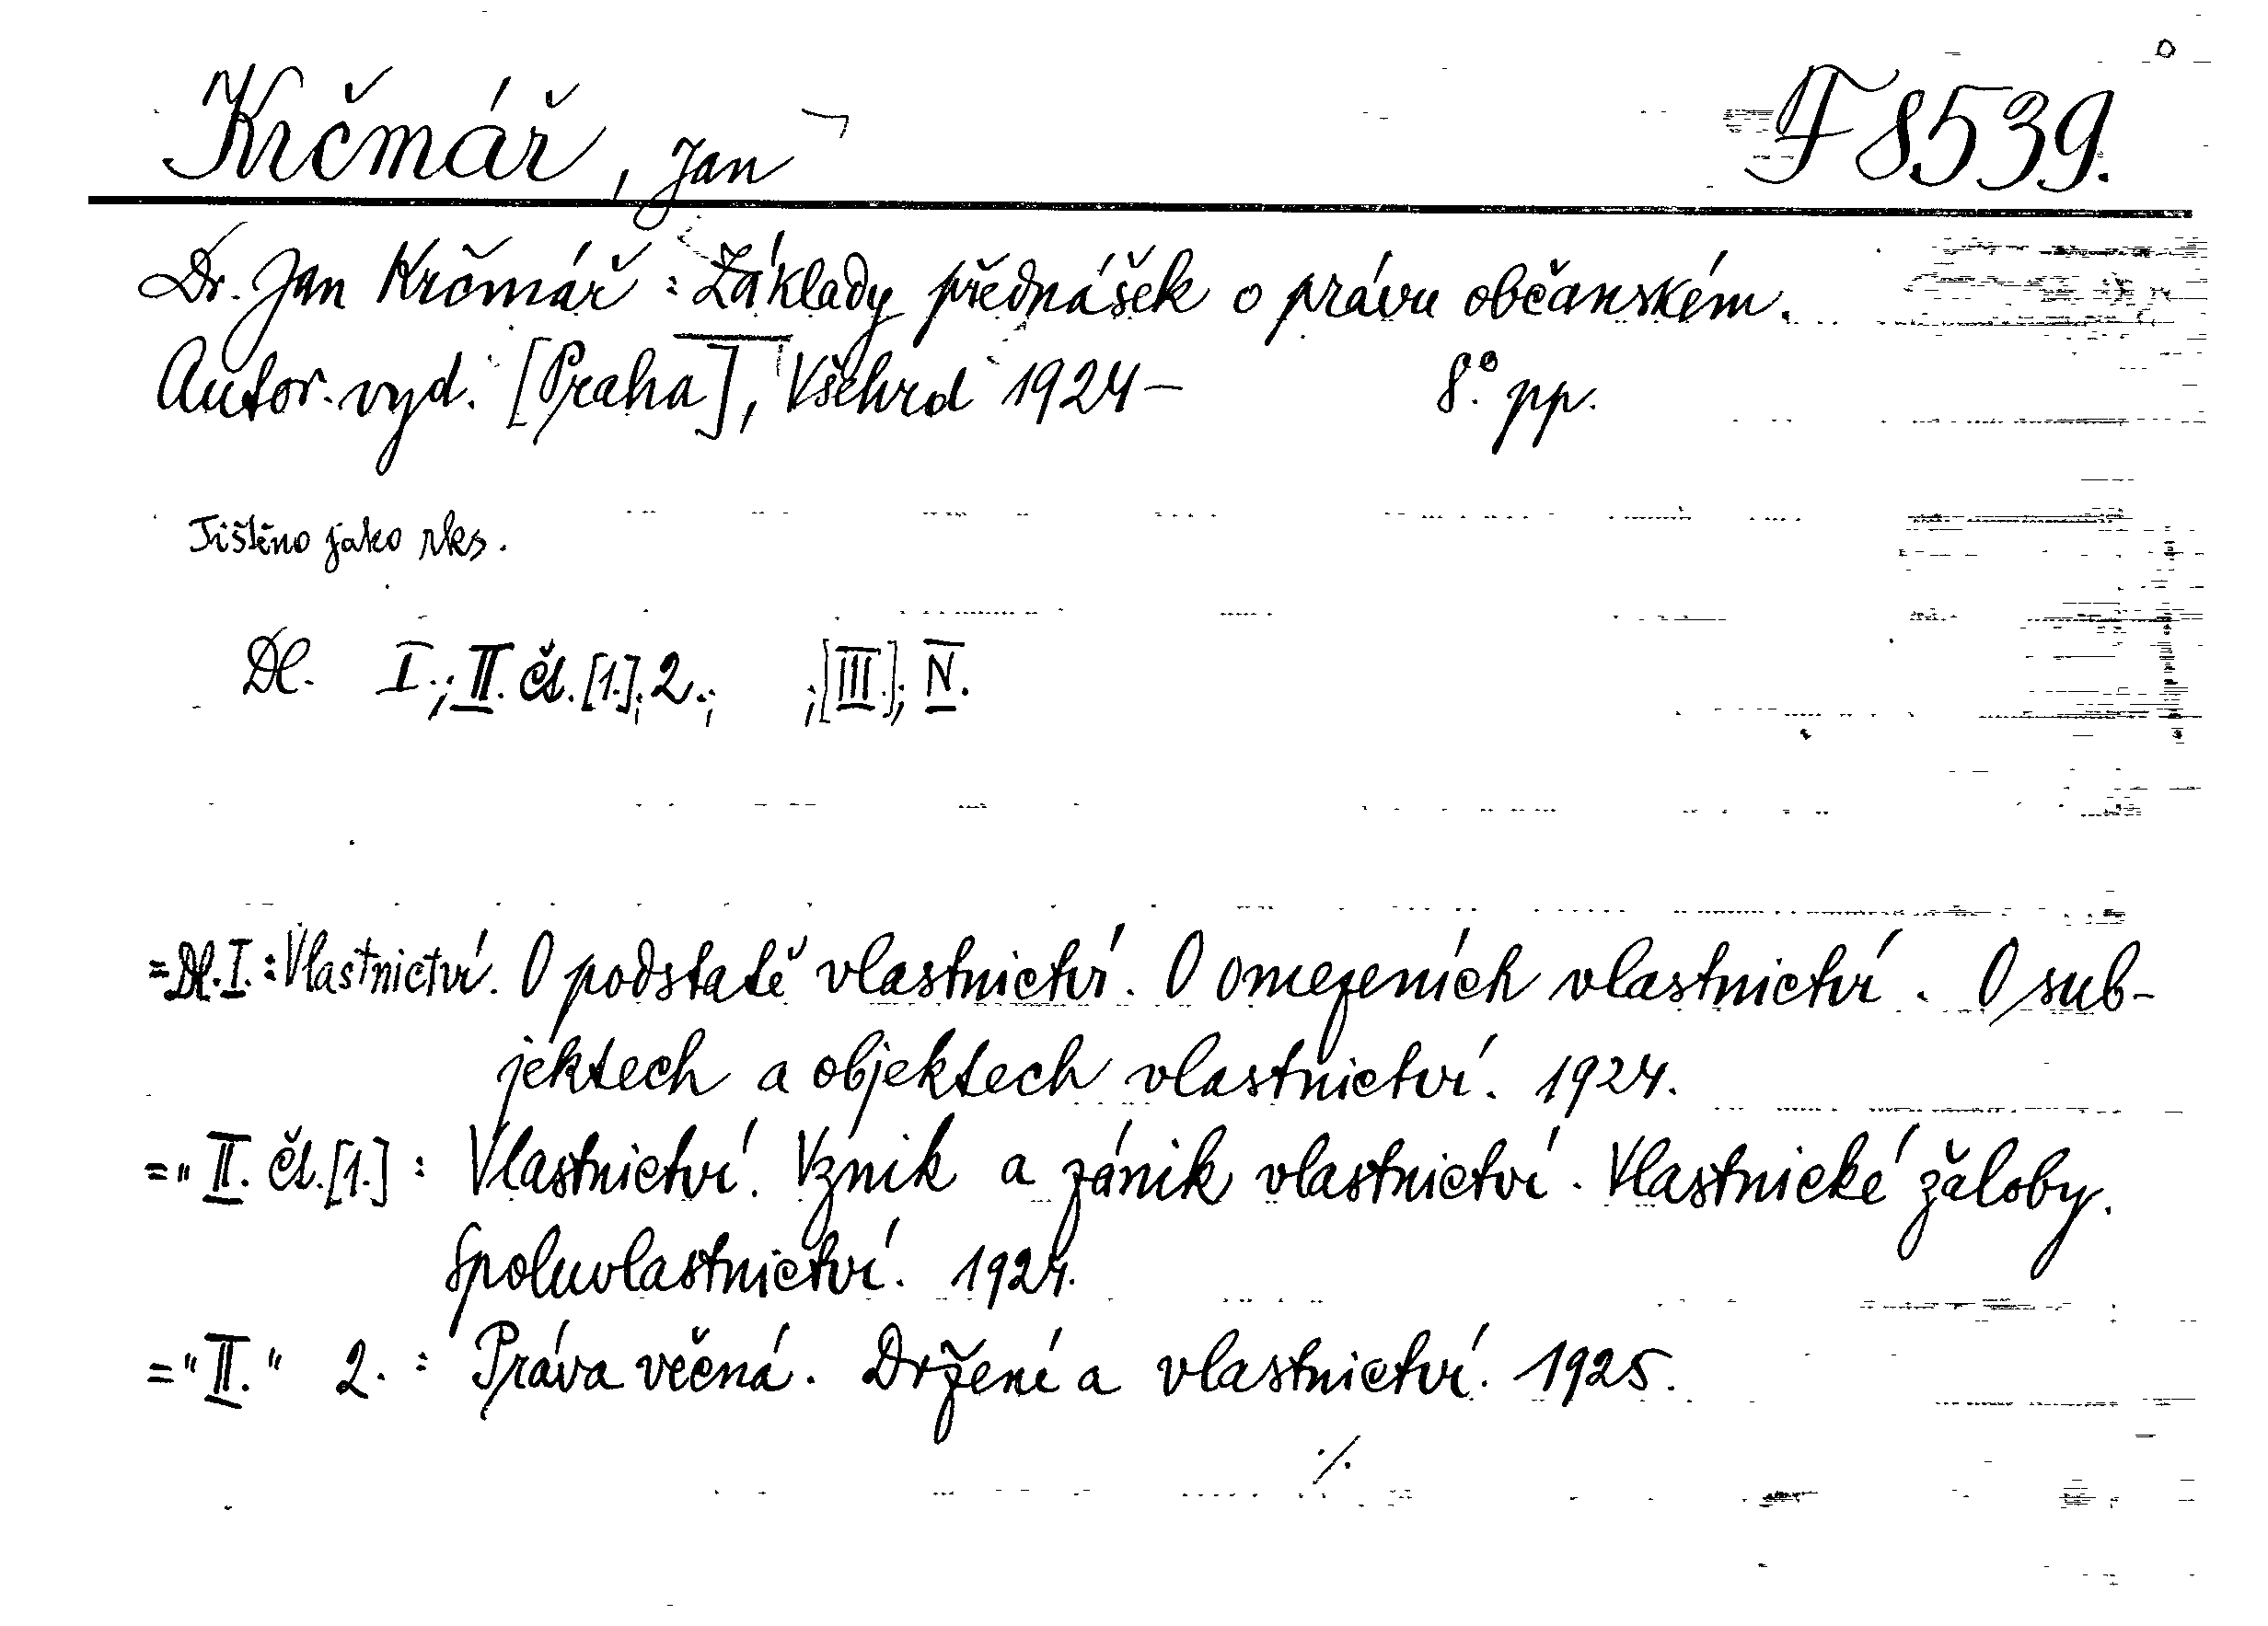 Krčmář, Jan F 8539.
Dr. Jan Krčmář: Základy přednášek o právu občanském.
Autor. vyd. [Praha], Všehrd 1924- 8° pp.
Tištěno jako rks.
Dl. I.; II. Čl. [1.]; 2.; ; [III.]; IV.
=Dl. I.: Vlastnictví. O podstatě vlastnictví. O omezeních vlastnictví. O sub-
jektech a objektech vlastnictví. 1924.
=" II. Čl. [1.]: Vlastnictví. Vznik a zánik vlastnictví. Vlastnické žaloby.
Spoluvlastnictví. 1924.
=" II. " 2.: Práva věcná. Držení a vlastnictví. 1925.
./.